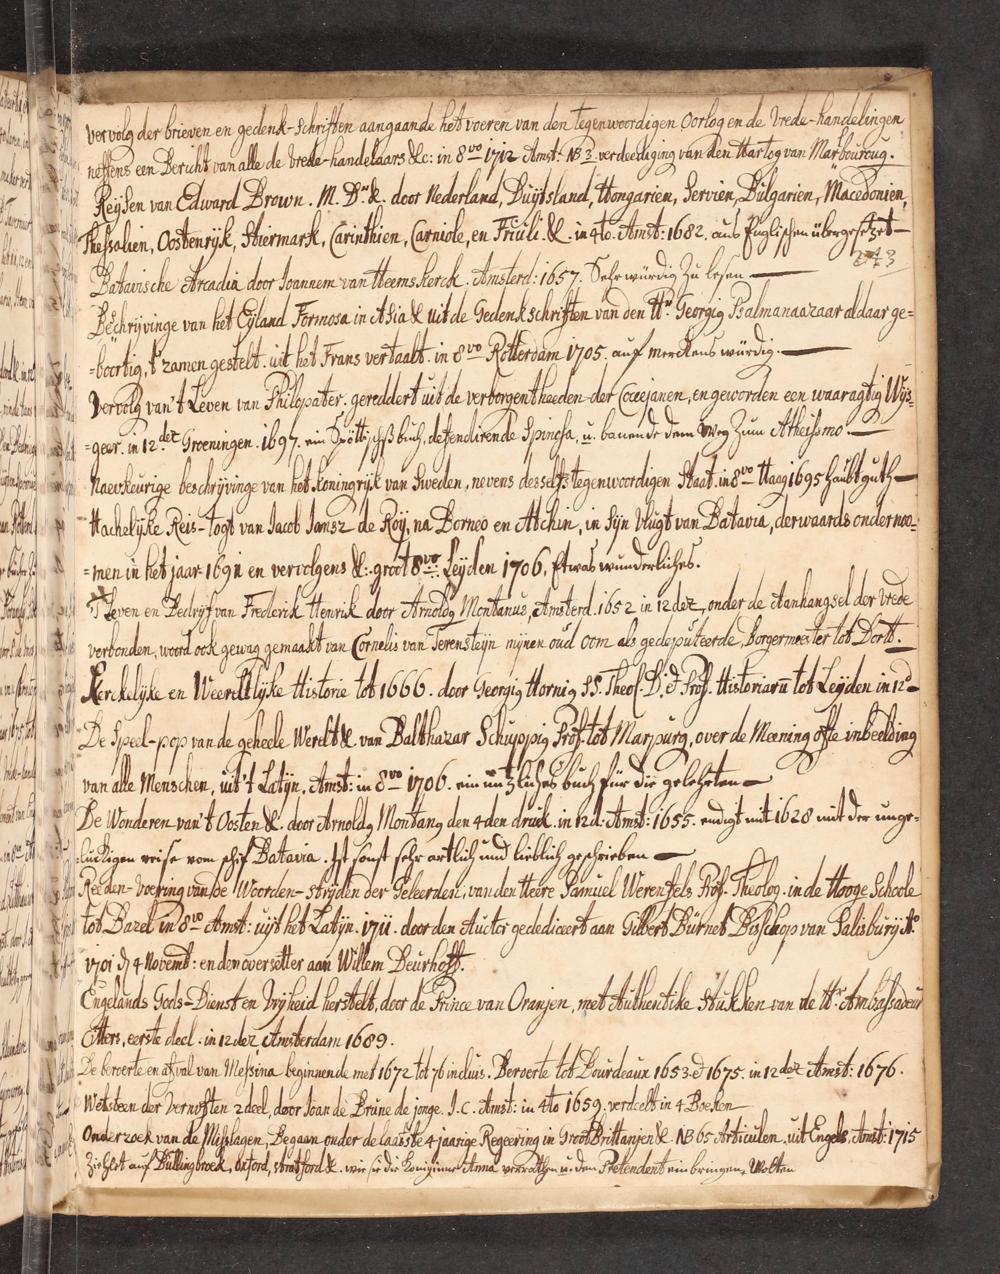 vervolg der brieven en gedenk-schriften aangaande het voeren van den tegenwoordigen Oorlog en de Vrede-handelingen
neffens een Bericht van alle de Vrede-handelaars &c: in 8vo 1712 Amst: NB 3 verdeediging van den Hartog van Marbouroug.
Reysen van Edward Brown. M. Dr. &. door Nederland, Duytsland, Hongarien, Servien, Bulgarien, Macedonien,
Thessalien, Oostenryk, Stiermark, Carinthien, Carniole, en Friuli. &. in 4to. Amst: 1682. aus Englischen übergesetzet
Batavische Arcadia door Joannem van Heemskerck. Amsterd: 1657. Sehr würdig zu lesen
Beschrijvinge van het Eyland Formosa in Asia & uit de Gedenkschriften van den Hr. Georgig Psalmanaazaar aldaar ge=
=boortig, t' zamen gestelt. uit het Frans vertaalt. in 8vo Rotterdam 1705. auf merckens würdig.
Vervolg van't Leven van Philopater. gereddert uit de verborgentheeden der Coccejanen, en geworden een waaragtig Wijs=
=geer. in 12der Groeningen. 1697. ein Spöttisches buch, defendirende Spinosa, u. banende dem Weg zum Atheissmo.
Naewkeurige beschrijvinge van het koningrijk van Sweden, nevens desselfs tegenwoordigen Staat. in 8vo Haag 1695 Haubt guth
Hachelijke Reis-Togt van Jacob Jansz de Roy, na Borneo en Atchin, in sijn vlugt van Batavia, derwaards ondernoo=
=men in het jaar 1691 en vervolgens &:. groot 8vo. Leyden 1706. Etwas wunderliches.
't Leven en Bedryf van Frederik Henrik door Arnoldg Montanus, Amsterd. 1652 in 12der, onder de Aanhangsel der vrede
verbonden, woord ook gewag gemaakt van Cornelis van Terensteyn mynen oud oom als gedeputeerde, Borgermeester tot Dortt.
Kerckelyke en Weereldlyke Historie tot 1666. door Georgig Hornig SS. Theol. D. & Prof. Historiarū tot Leyden in 12d
De Speel-pop van de geheele Werelt &. van Balthazar Schuppig Prof. tot Marpurg, over de Meening offte inbeelding
van alle Menschen, uit 't Latyn. Amst: in 8vo 1706. ein nützliches buch für die gelehrten
De Wonderen van't Oosten &. door Arnoldg Montang den 4den druck. in 12d. Amst: 1655. endigt mit 1628 mit der unge=
lückigen reise vom schif Batavia. Ist sonst sehr artlich und lieblich geschrieben
Reeden-Voering van de Woorden-stryden der Geleerden, van den Heere Samuel Werenfels Prof. Theolog. in de Hooge Schoole
tot Bazel in 8vo Amst: uyt het Latyn. 1711. door den Auctor gedediceert aan Gilbert Burnet Bisschop van Salisbury Ao
1701 4 Novemb: en den oversetter aan Willem Deurhoff.
Engelands Gods-Dienst en Vryheid herstelt, door de Prince van Oranjen, met Authentike Stukken van de Hr. Ambassadeur
Citters, eerste deel. in 12der Amsterdam 1689.
De beroerte en afval van Messina beginnende met 1672 tot 76 incluis. Beroerte tot Bourdeaux 1653 & 1675. in 12der Amst: 1676.
Wetsteen der vernuften 2 deel, door Joan de Brune de jonge. J.C. Amst: in 4to 1659. verdeelt in 4 Boeken
Onderzoek van de Misslagen, Begaan onder de laatste 4 jaarige Regeering in Groot Brittanjen & NB 65 Articulen, uit Engels, Amst: 1715
Ziehlet auf Bullingbroek, oxford, stratford &. wie sie die Königinne Anna verrathen u. den Pretendent einbringen Wolten